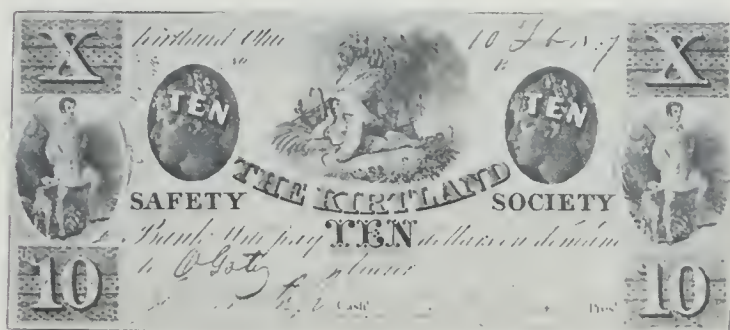 X Kirtland Ohio 10 Feb X
TEN TEN
SAFETY THE KIRTLAND SOCIETY
Bank Will pay TEN dollars on demand
to O Gates
10 Cash. Pres. 10